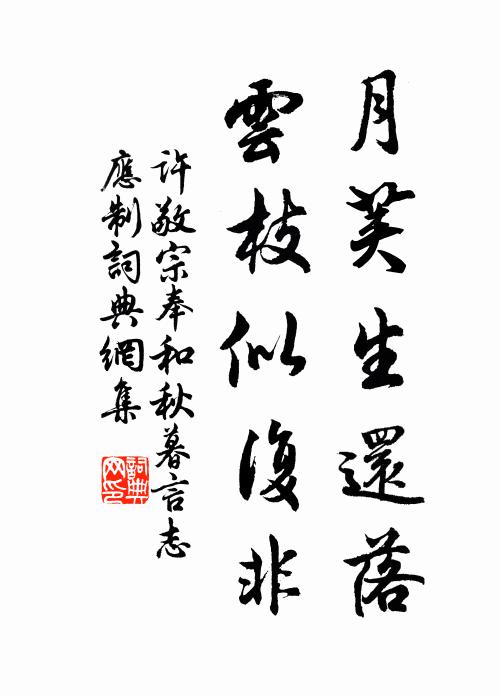 月莢生還落
雲枝似復非
許敬宗奉和秋暮言志
應制詞典網集
詞典
网印